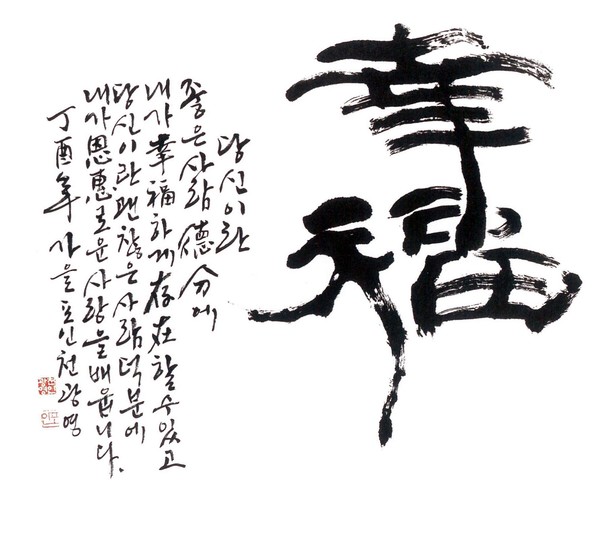 幸
福
당신이란
좋은 사람 德分에
내가 幸福하게 存在할 수 있고
당신이란 괜찮은 사람 덕분에
내가 恩惠로운 사랑을 배웁니다.
丁酉年 가을 포인 천광영